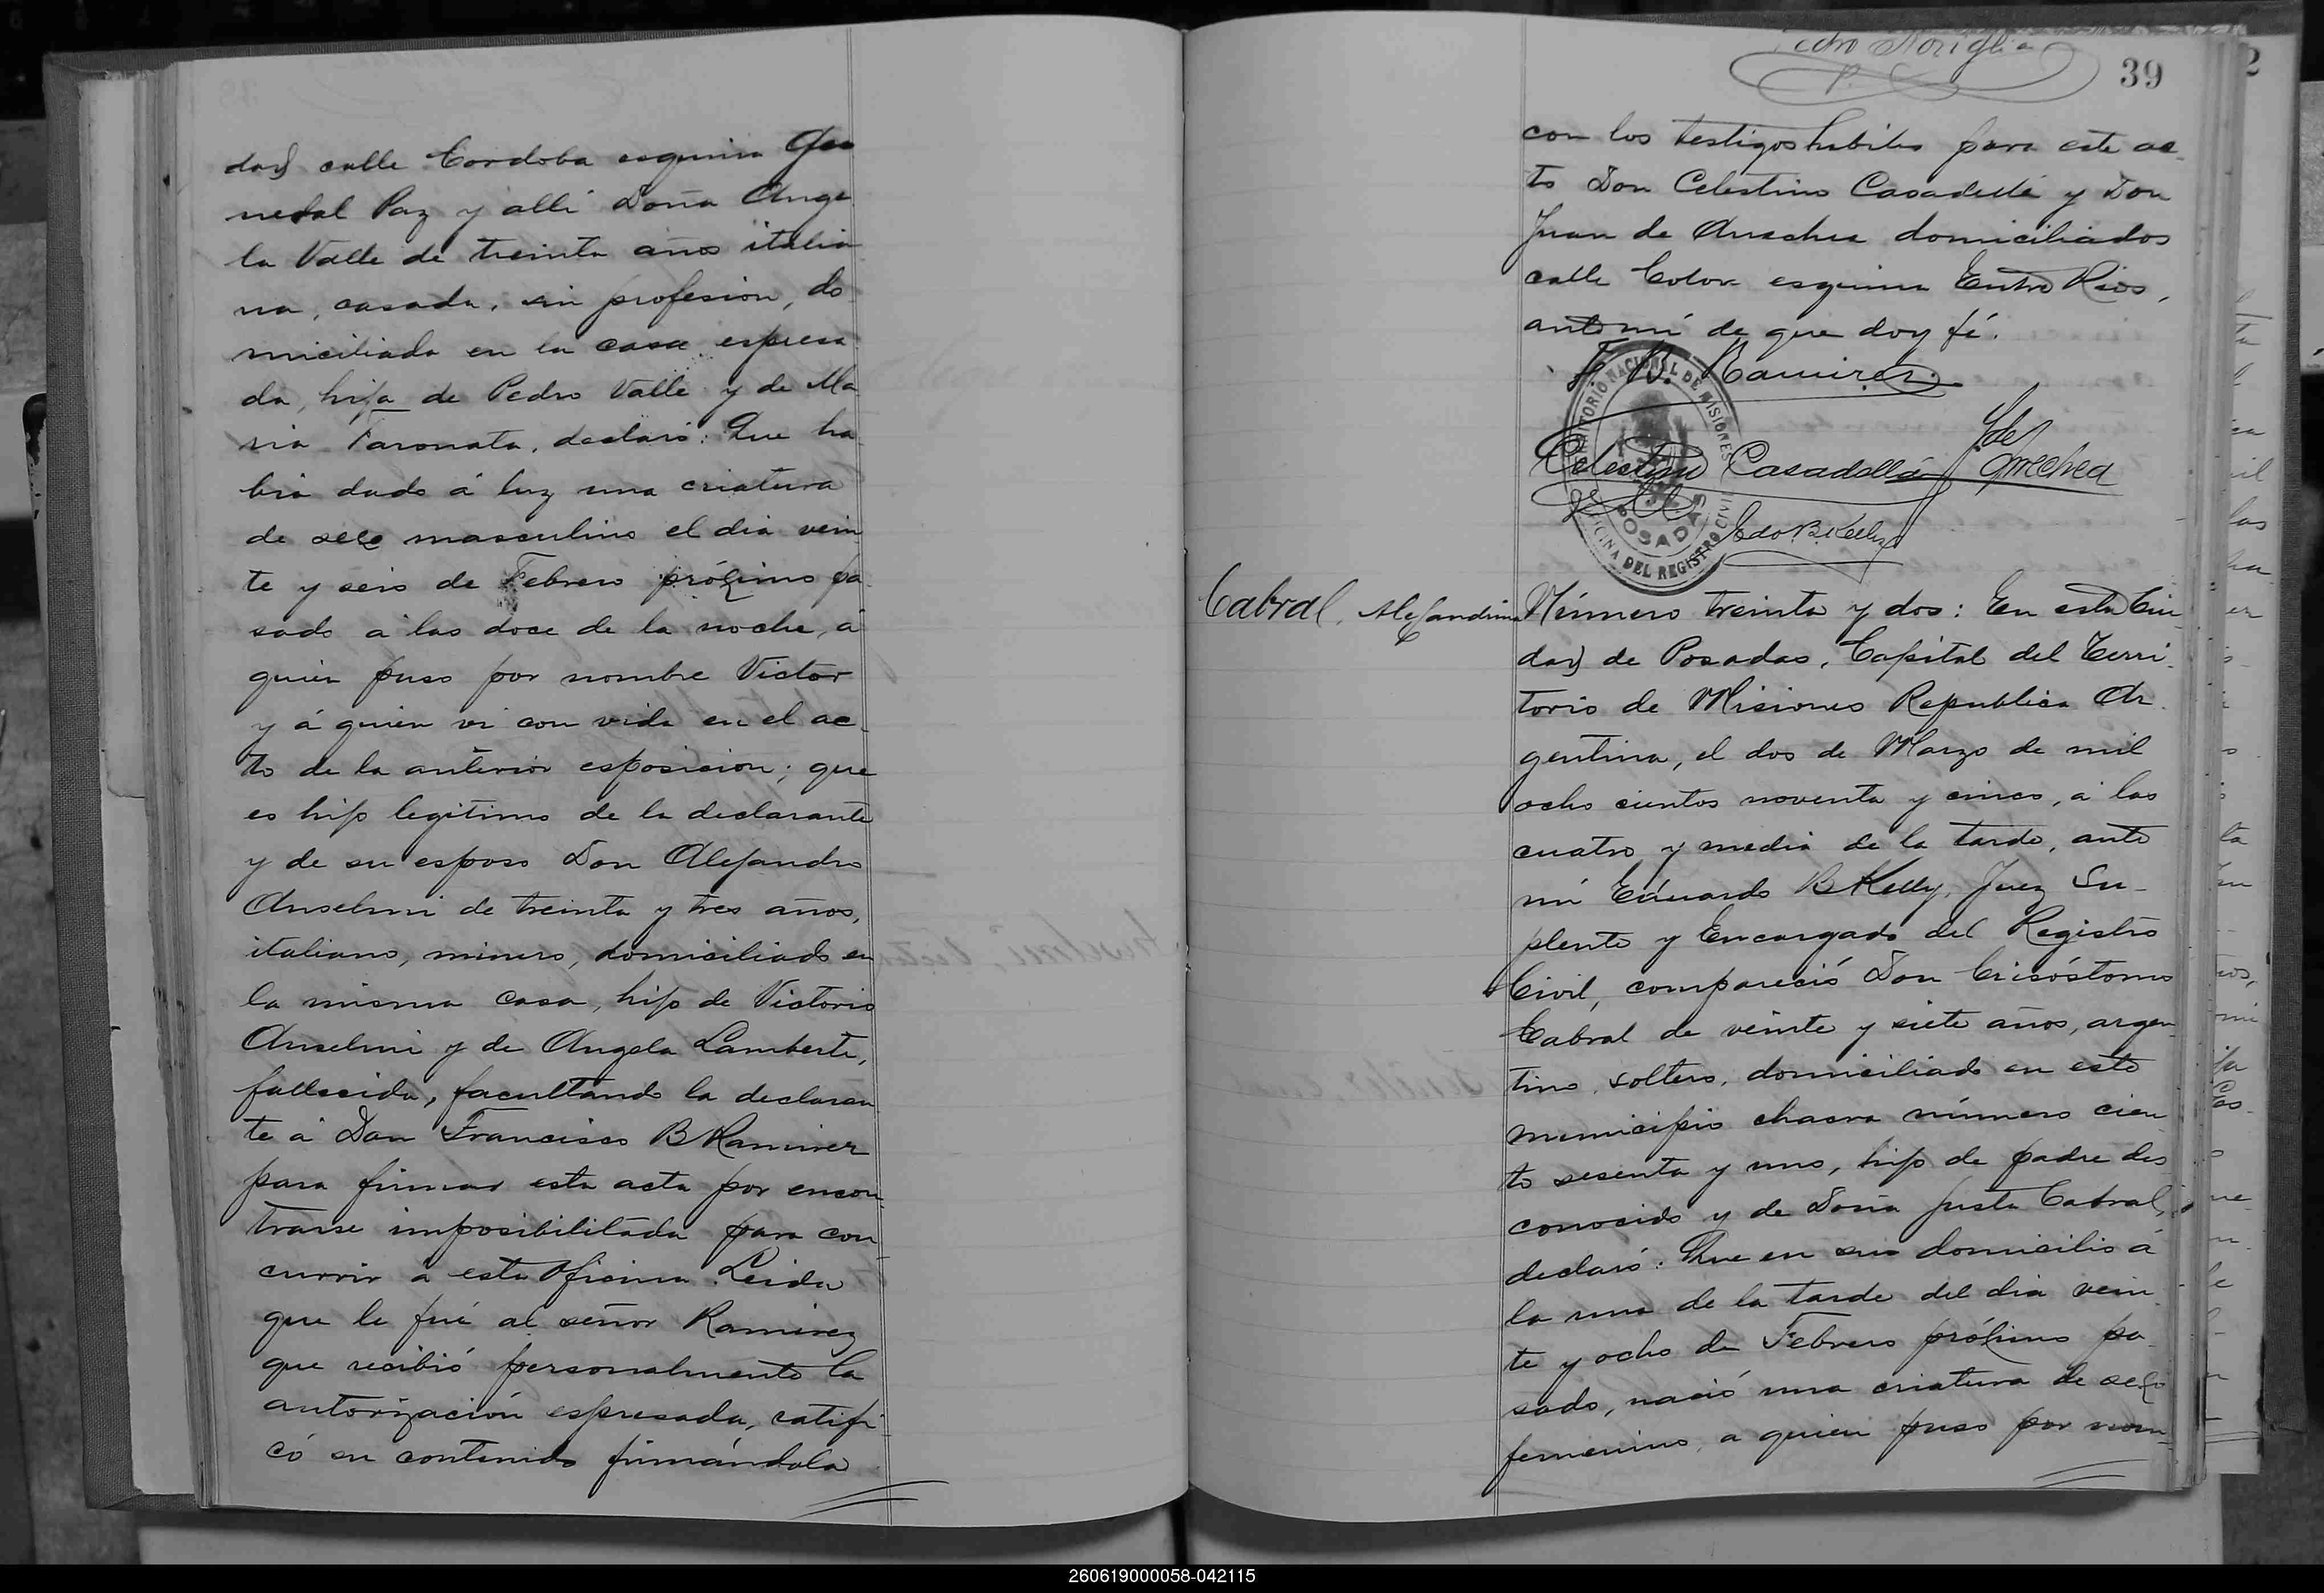 dad calle Cordoba esquina Ge
neral Paz y alli Doña Ange
la Valle de treinta años italia
na, casada, sin profesion, do
miciliada en la casa espresa
da, hija de Pedro Valle y de Ma
ria Taronata, declaró: Que ha
bia dado á luz una criatura
de sexo masculino el dia vein
te y seis de Febrero próximo pa
sado a las doce de la noche, á
quien puso por nombre Victor
y á quien vi con vida en el ac
to de la anterior esposicion; que
es hijo legitimo de la declarante
y de su esposo Don Alejandro
Anselmi de treinta y tres años,
italiano, minero, domiciliado en
la misma casa, hijo de Victorio
Anselmi y de Angela Lamberti,
fallecida, facultando la declaran
te á Don Francisco B Ramirez
para firmar esta acta por encon
trarse imposibilitada para con
currir a esta Oficina. Leida
que le fué al señor Ramirez
que recibió personalmente la
autorización espresada, ratifi
có su contenido firmándola
39
con los testigos habiles para este ac
to Don Celestino Casadellá y Don
Juan de Arrechea domiciliados
calle Colon esquina Entre Rios,
ante mi de que doy fé.
F. B. Ramirez
TERRITORIO NACIONAL DE MISIONES
POSADAS
OFICINA DEL REGISTRO CIVIL
Celestino Casadellá J de Arrechea
Edo B Kelly
Cabral, Alejandrina
Número treinta y dos: En esta Ciu
dad de Posadas, Capital del Terri
torio de Misiones Republica Ar
gentina, el dos de Marzo de mil
ocho cientos noventa y cinco, á las
cuatro y media de la tarde, ante
mi Eduardo B Kelly, Juez Su
plente y Encargado del Registro
Civil, compareció Don Crisóstomo
Cabral de veinte y siete años, argen
tino, soltero, domiciliado en este
municipio chacra número cien
to sesenta y uno, hijo de padre des
conocido y de Doña Justa Cabral,
declaró: Que en su domicilio á
la una de la tarde del dia vein
te y ocho de Febrero próximo pa
sado, nació una criatura de sexo
femenino, a quien puso por nom
260619000058-042115